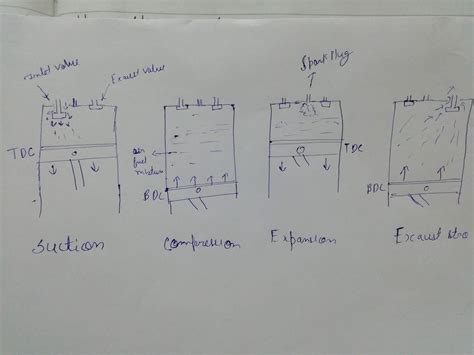 Spark Plug
inlet valve
Exaust valve
TDC
air
fuel
mixture
BDC
TDC
BDC
Suction
Compression
Expansion
Excaust stro